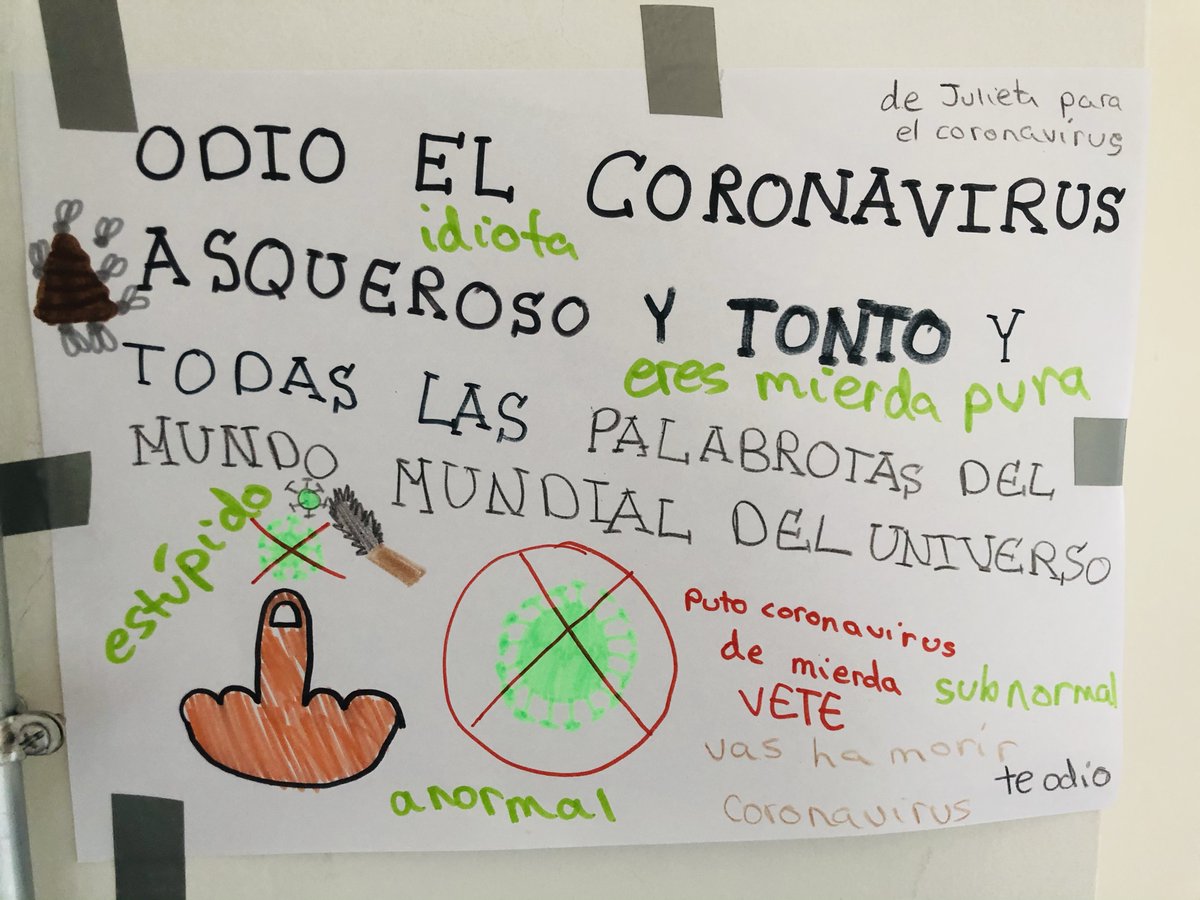 de Julieta para
el coronavirus
ODIO EL CORONAVIRUS
idiota
ASQUEROSO Y TONTO Y
eres mierda pura
TODAS LAS PALABROTAS DEL
MUNDO MUNDIAL DEL UNIVERSO
estúpido
puto coronavirus
de mierda
VETE
subnormal
vas ha morir
te odio
coronavirus
anormal